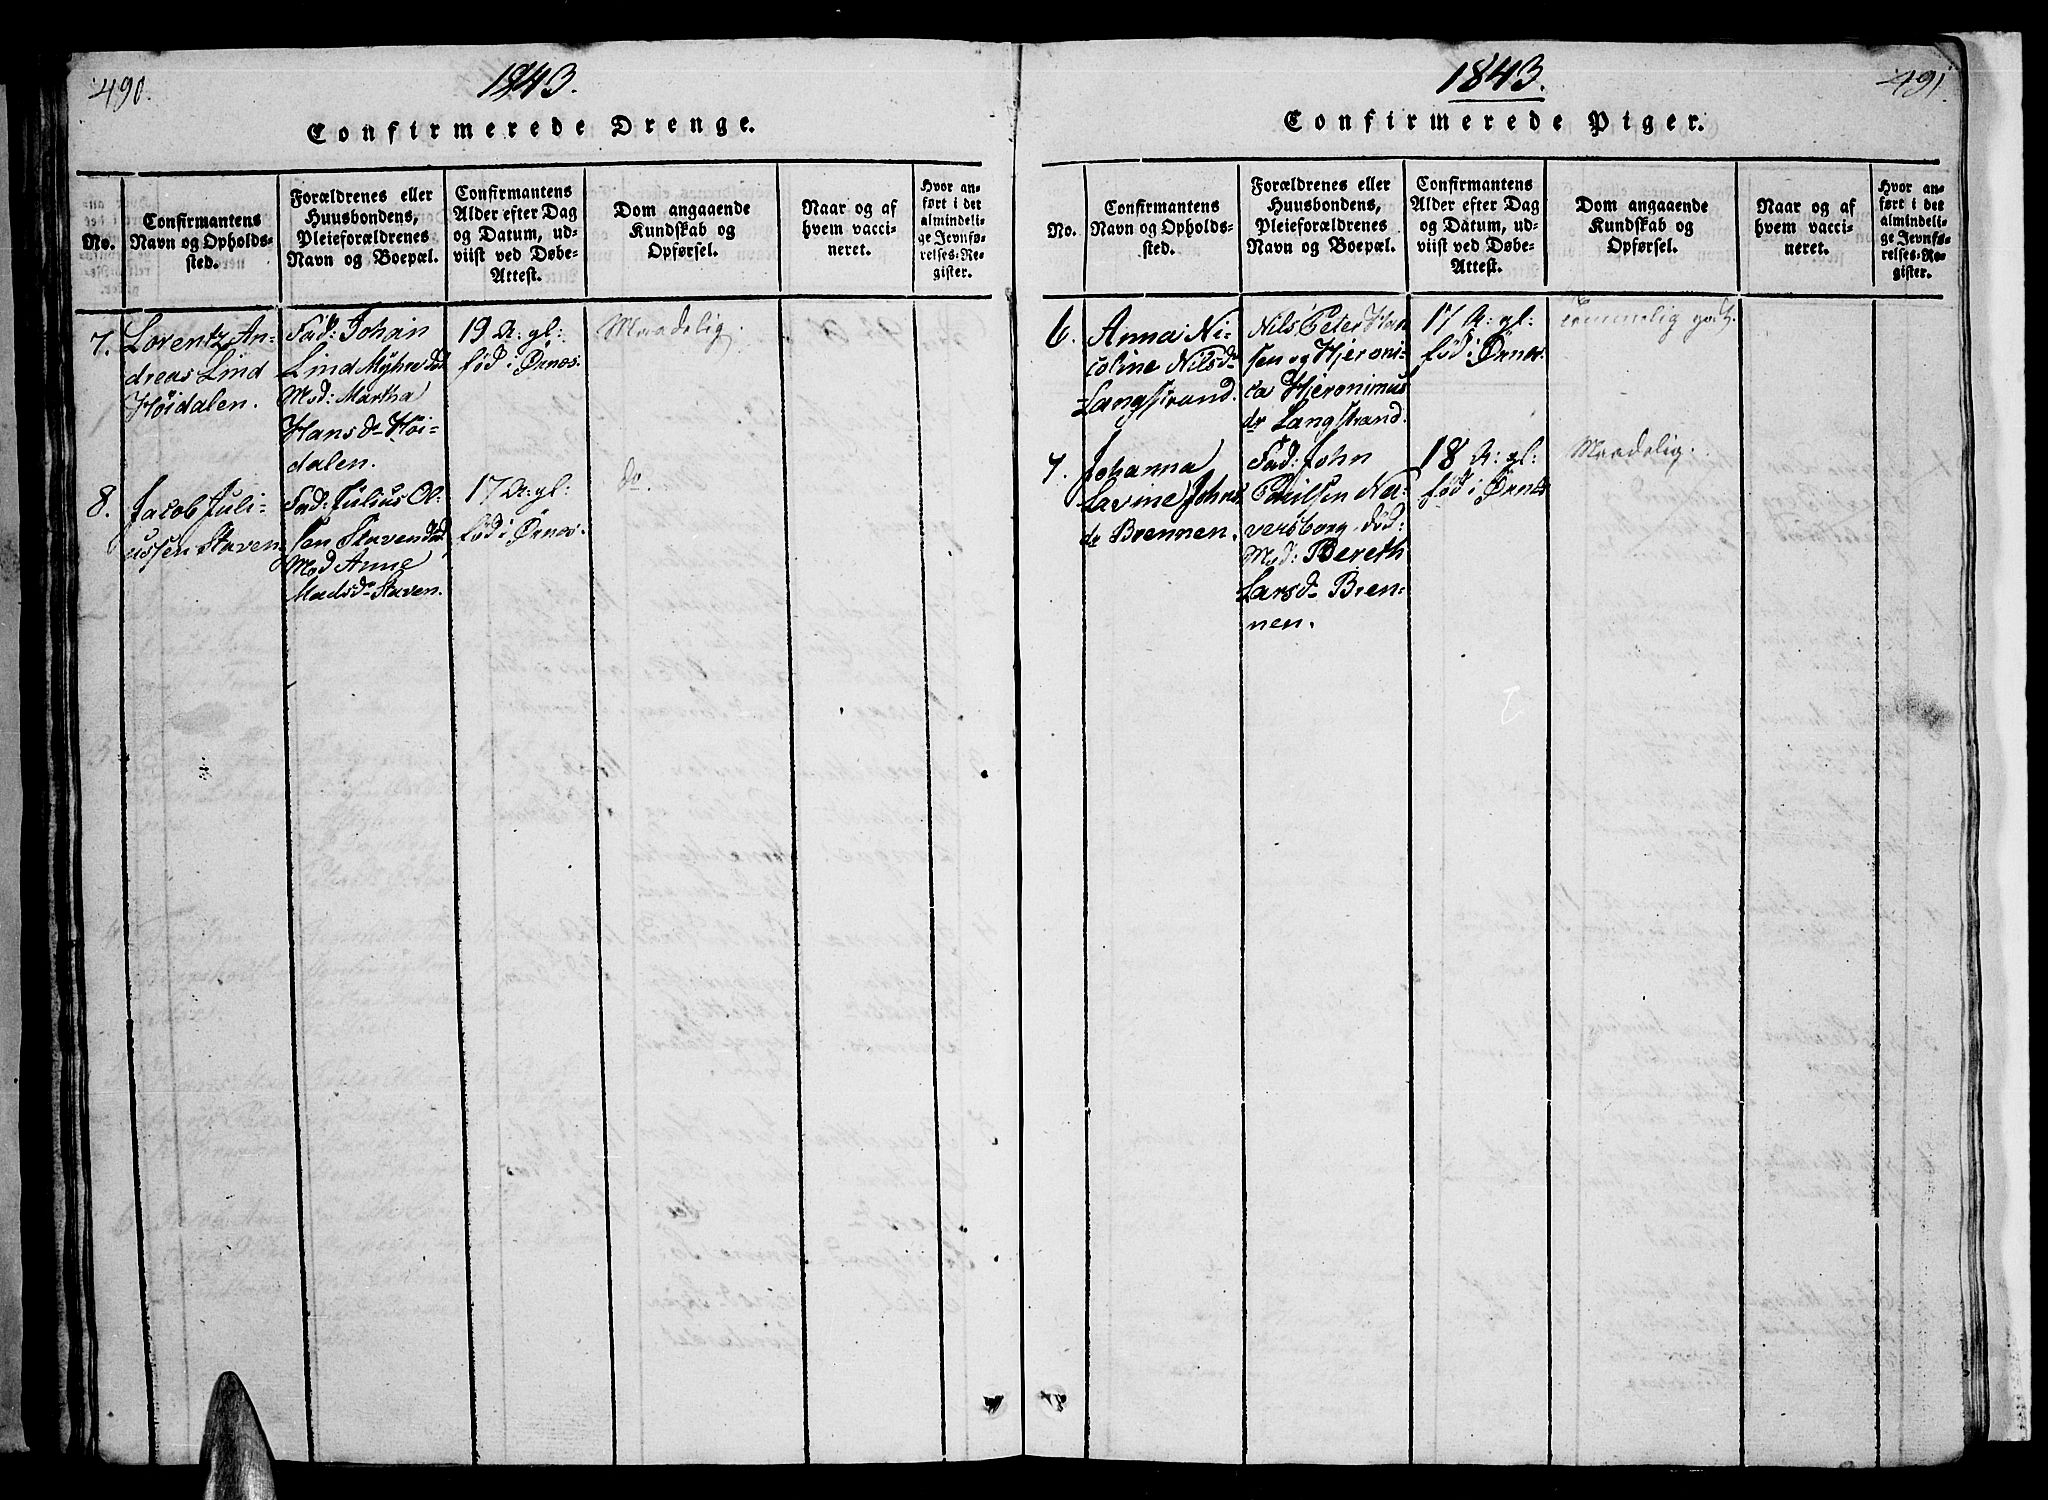 490.
1843.
Confirmerede Drenge.
No.
Confirmantens
Navn og Opholds-
sted.
Forældrenes eller
Huusbondens,
Pleieforældrenes
Navn og Boepæl.
Confirmantens
Alder efter Dag
og Datum, ud-
viist ved Døbe-
Attest.
Dom angaaende
Kundskab og
Opførsel.
Naar og af
hvem vacci-
neret.
Hvor an-
ført i det
almindeli-
ge Jevnfø-
relses-Re-
gister.
7.
Lorentz An-
dreas Lind
Höidalen.
Fad: Johan
Lind Myhre
Mod: Martha
Hans dr Höi-
dalen.
19 A: gl:
föd i Örnes.
Maadelig.
8.
Jacob Juli-
ussen Staven
Fad: Julius Ol-
sen Staven
Mod Anne
Madsdr Staven.
17 A: gl:
föd i Örnes.
do.
1843.
491.
Confirmerede Piger.
No.
Confirmantens
Navn og Opholds-
sted.
Forældrenes eller
Huusbondens,
Pleieforældrenes
Navn og Boepæl.
Confirmantens
Alder efter Dag
og Datum, ud-
viist ved Døbe-
Attest.
Dom angaaende
Kundskab og
Opførsel.
Naar og af
hvem vacci-
neret.
Hvor an-
ført i det
almindeli-
ge Jevnfø-
relses-Re-
gister.
6.
Anna Ni-
coline Nilsdr
Langstrand.
Nils Peter Han
sen og Hjeroni-
ca Hjeronimus
dr Langstrand.
17 A: gl:
föd i Örnes.
Temmelig godt.
7.
Johanna
Lavine Johns
dr Brennen.
Fad: John
Paulsen Na-
versborg död:
Mod: Bereth
Larsdr Bren-
nen.
18 A: gl:
föd i Örnes
Maadelig.